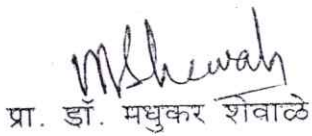 MShewale
प्रा. डॉ. मधुकर शेवाळे